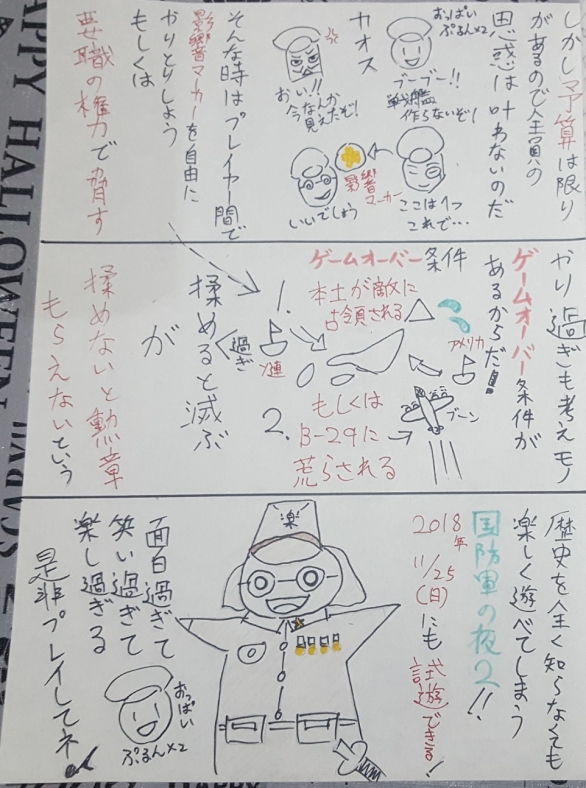 しかし予算は限り
があるので全員の
思惑は叶わないのだ
おっぱい
ぷるん×2
ブーブー!!
戦艦
作らないぞ!
カオス
おい!!
今なんか
見えたぞ!
ここは1つ
これで…
影響
マーカー
いいでしょう
そんな時はプレイヤー間で
影響マーカーを自由に
やりとりしよう
もしくは
要職の権力で脅す
やり過ぎも考えモノ
ゲームオーバー条件が
あるからだ!
ゲームオーバー条件
1.
本土が敵に
占領される
アメリカ
ソ連
2.
もしくは
B-29に
荒らされる
ブーン
揉め過ぎると滅ぶ
が
揉めないと勲章
もらえないという
歴史を全く知らなくても
楽しく遊べてしまう
国防軍の夜2!!
2018年
11/25
(日)にも
試遊できる!
楽
面白過ぎて
笑い過ぎて
楽し過ぎる
おっぱい
ぷるん×2
是非プレイしてネ!
HAPPY HALLOWEEN
HAPPY